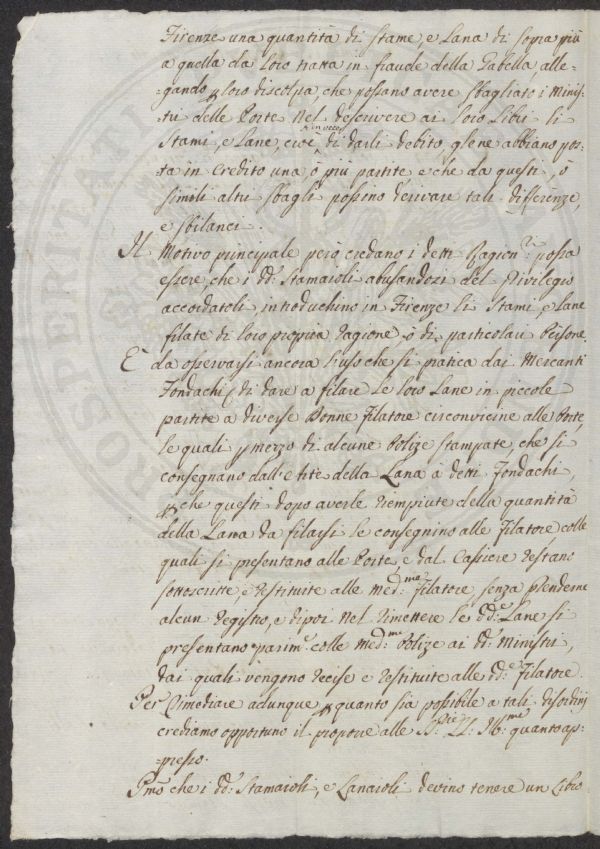 Firenze una quantità di Stame, e Lana di sopra più
a quella da loro tratta in fraude della Gabella, alle-
-gando p loro discolpa, che possano avere sbagliato i Minis-
tri delle Porte nel descrivere ai loro Libri li
Stami, e Lane, cioè in vece di darli debito, gl'ene abbiano por-
ta in Credito una, ò più partite, e che da questi, ò
simili altri sbagli possino derivare tali differenze,
e sbilanci.
Il Motivo principale però credano i detti Ragion.ri possa
essere, che i dd.i Stamaioli abusandosi del Privilegio
accordatoli introduchino in Firenze li Stami, e Lane
filate di loro propria ragione, ò di particolari Persone.
È da osservarsi ancora l'uso che si pratica dai Mercanti
Fondachi, di dare a filare le loro Lane in piccole
partite à diverse Donne filatore circonvicine alle Porte,
le quali p mezzo di alcune Polize stampate, che si
consegnano dall'Arte della Lana à detti Fondachi,
p che questi dopo averle riempiute della quantità
della Lana da filarsi le consegnino alle Filatore, colle
quali si presentano alle Porte, e dal Cassiere restano
sottoscritte, e restituite alle med.me Filatore, senza prenderne
alcun Registro, e dipoi nel rimettere le dd.e Lane si
presentano parim.e colle med.me Polize ai dd.i Ministri,
dai quali vengono recise e restituite alle dd.e Filatore.
Per rimediare adunque p quanto sia possibile a tali disordini
crediamo opportuno il proporre alle SS.rie LL. Ill.me quanto ap-
-presso.
Pmo che i dd.i Stamaioli, e Lanaioli devino tenere un Libro